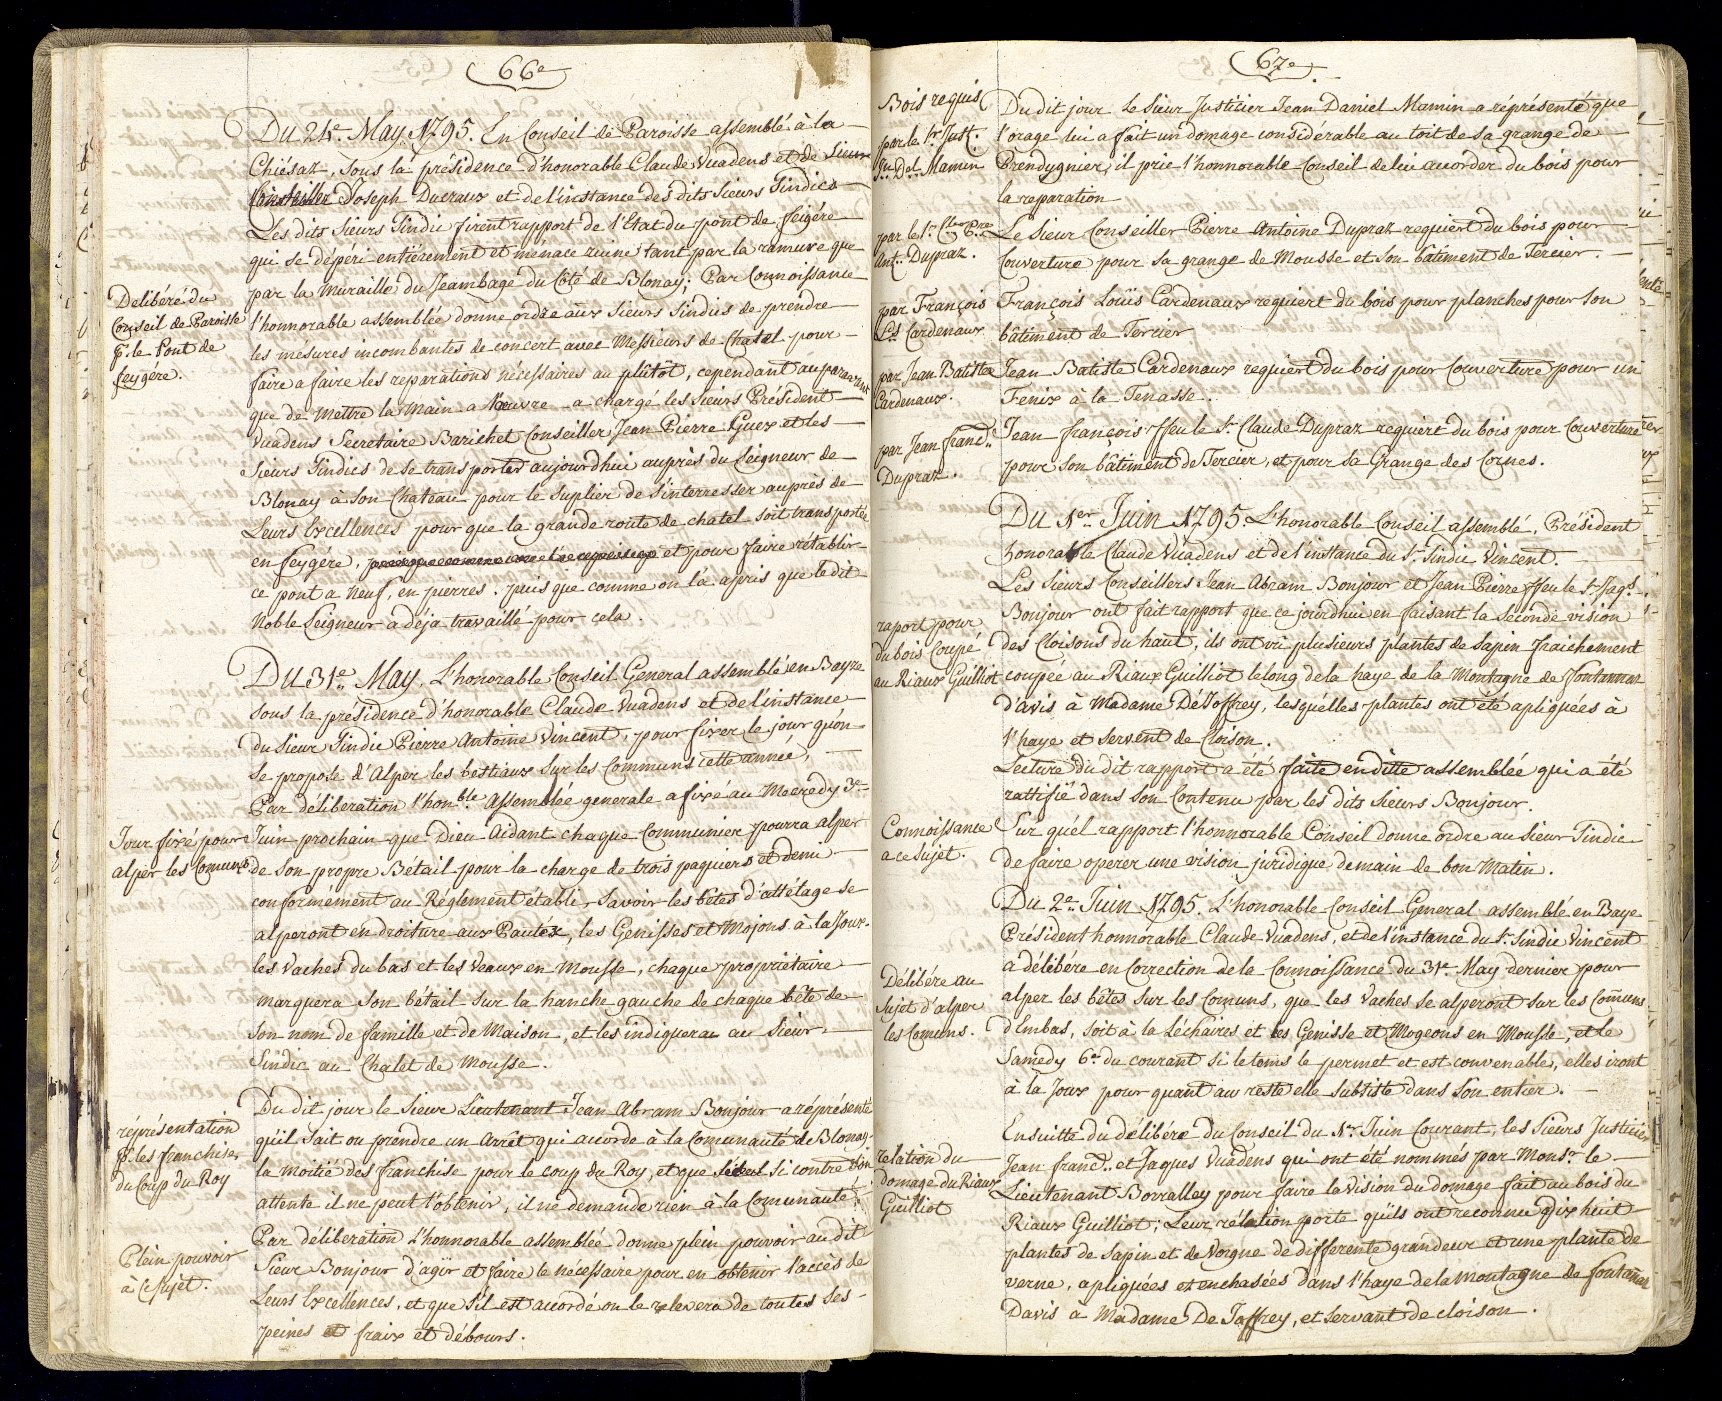 66e
Du 24e. May. 1795. En Conseil de Paroisse assemblé à la
Chiésaz, sous la présidence d'honorable Claude Vuadens et de Sieur
Conseiller Joseph Ducraux et de l'instance des dits Sieurs Sindics
Les dits Sieurs Sindic firent rapport de l'Etat du pont de feigére
qui se dépéri entiérement et menace ruine tant par la ramure que
par la Muraille du Jeambage du Côté de Blonay; Par Connoissance
Delibéré du
Conseil de Paroisse
pr. le Pont de
feygere.
l'honnorable assemblée donne ordre aux Sieurs Sindics de prendre
les mésures incombantes de concert avec Messieurs de Chatel pour
faire a faire les reparations nécessaires au plûtôt, cependant auparavant
que de mettre la Main a l'oeuvre a chargé les Sieurs Président
Vuadens Secretaire Barichet Conseiller Jean Pierre Guex et les
Sieurs Sindics de se transporter aujourdhui auprès du Seigneur de
Blonay à son Chateau pour le suplier de s'interresser auprès de
Leurs Excellences pour que la grande route de chatel soit transportée
en feygére, et pour faire rétablir
ce pont a neuf, en pierres. puis que comme on l'a apris que le dit
Noble Seigneur a déja travaillé pour cela.
Du 31e. May. L'honorable Conseil General assemblé en Bayze
sous la présidence d'honorable Claude Vuadens et de l'instance
du Sieur Sindic Pierre Antoine Vincent, pour fixer le jour qu'on
se propose d'Alper les bestiaux sur les Communs cette année,
Par déliberation l'honble. Assemblée generale a fixé au Mecredy 3e.
Jour fixé pour
alper les Comuns
Juin prochain que Dieu Aidant chaque Communier pourra alper
de son propre Bétail pour la charge de trois paquiers et demi
conformément au Réglement établi, Savoir les bêtes d'attélage se
alperont en droiture aux Pautéx, les Genisses et Mojons à la Joux.
les Vaches du bas et les Veaux en Mousse, chaque propriétaire
marquera Son bétail sur la hanche gauche de chaque bête de
son nom de famille et de Maison, et les indiquera au Sieur
Sindic au Chalet de Mousse.
représentation
pr. les franchises
du Coup du Roy
Du dit jour le Sieur Lieutenant Jean Abram Bonjour a réprésenté
qu'il sait ou prendre un Arrêt qui accorde à la Comunauté de Blonay,
la moitié des franchise pour le coup du Roy, et que si contre son
attente il ne peut l'obtenir, il ne demande rien à la Comunauté.
Plein pouvoir
à ce sujet.
Par déliberation L'honnorable assemblée donne plein pouvoir au dit
Sieur Bonjour d'agir et faire le nécessaire pour en obtenir l'accès de
Leurs Excellences, et que s'il est accordé on le relevera de toutes ses
peines et fraix et débours.
67e.
Bois requis
par le Sr. Just.
Jn. Del. Mamin
Du dit jour Le Sieur Justicier Jean Daniel Mamin a représenté que
l'orage lui a fait un domage considérable au toit de sa grange de
Prendugnier, il prie l'honnorable Conseil de lui accorder du bois pour
la reparation
par le Sr. Cller Pre
Ant. Dupraz.
Le Sieur Conseiller Pierre Antoine Dupraz requiert du bois pour
Couverture pour sa grange de Mousse et son bâtiment de Tercier.
par François
Ls. Cardenaux
François Loüis Cardenaux requiert du bois pour planches pour son
bâtiment de Tercier
par Jean Batiste
Cardenaux.
Jean Batiste Cardenaux requiert du bois pour Couverture pour un
Fenix à la Tenasse.
par Jean franc.
Dupraz.
Jean françois ffeu le Sr. Claude Dupraz requiert du bois pour Couverture
pour son bâtiment de Tercier, et pour sa Grange des Cornes.
Du 1er Juin 1795. L'honorable Conseil assemblé, Président
honorable Claude Vuadens et de l'instance du Sr. Sindic Vincent.
Les Sieurs Conseillers Jean Abram Bonjour et Jean Pierre ffeu le Sr. Jaqs.
raport pour
du bois Coupé
au Riaux Guilliot
Bonjour ont fait rapport que ce jourdhui en faisant la seconde vision
des Cloisons du haut, ils ont vü plusieurs plantes de Sapin fraichement
coupée au Riaux Guilliot le long de la haye de la Montagne de ffontannaz
d'avis à Madame De Joffrey, lesquélles plantes ont été apliquées à
l'haye et servent de Cloison.
Lecture du dit rapport a été faite en ditte assemblée qui a été
rattifié dans son Contenu par les dits Sieurs Bonjour.
Connoissance
a ce Sujet.
Sur quél rapport l'honnorable Conseil donne ordre au Sieur Sindic
de faire operer une vision juridique demain de bon Matin.
Du 2e. Juin 1795. L'honorable Conseil General assemblé en Baye
Président honnorable Claude Vuadens, et de l'instance du Sr. Sindic Vincent
Délibére au
Sujet d'alper
les Comuns.
a délibére en Correction de la Connoissance du 31e. May dernier pour
alper les bêtes sur les Comuns, que les Vaches se alperont sur les Comuns
d'Embas, soit à la Léchaires et les Genisse et Mogeons en Mousse, et le
Samedy 6e. du courant si le tems le permet et est convenable, elles iront
à la Joux pour quant au reste elle subsiste dans son entier.
relation du
domage du Riaux
Guilliot
Ensuitte du délibére du Conseil du 1er. Juin Courant, les Sieurs Justicier
Jean franc. et Jaques Vuadens qui ont été nommés par Monsr. le
Lieutenant Borralley pour faire la Vision du domage fait au bois du
Riaux Guilliot; Leur rélation porte qu'ils ont reconnu dix huit
plantes de Sapin et de Vorgne de differente grandeur et une plante de
verne, apliquées et enchasées dans l'haye de la Montagne de fontanaz
Davis à Madame De Joffrey, et servant de cloison.